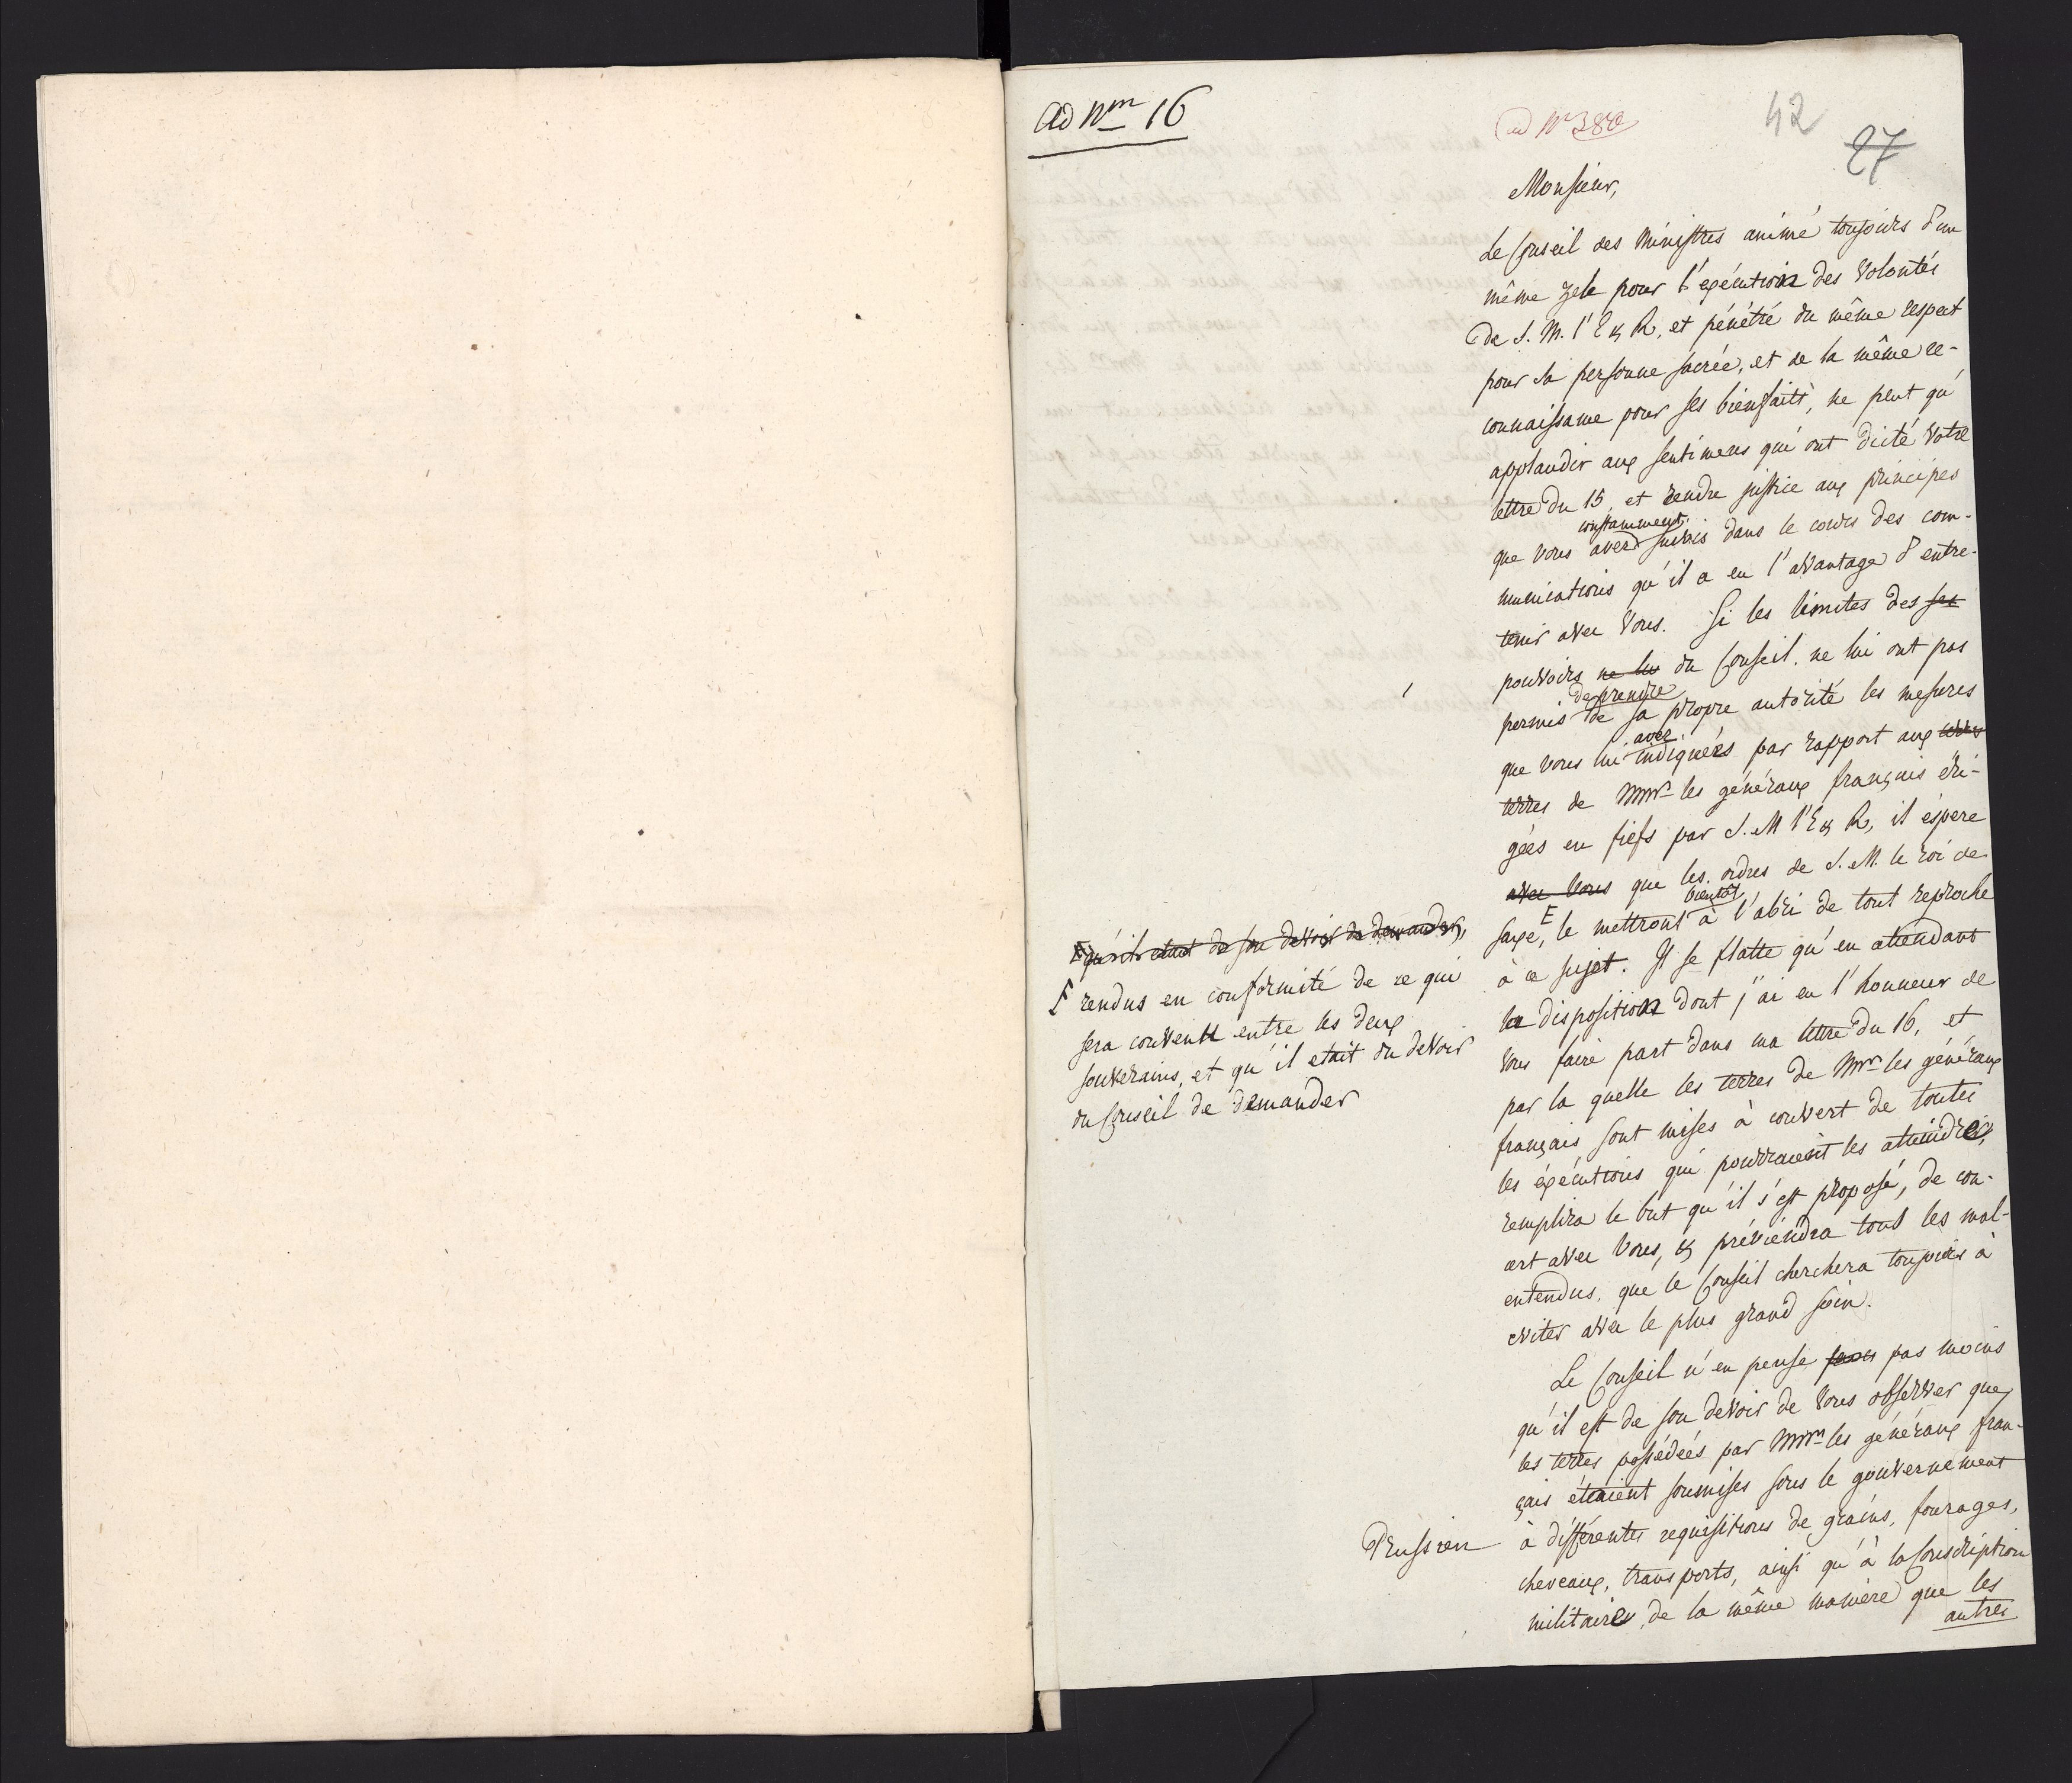 Ad Nm 16
ad N 380
42
27
Monsieur,
Le Conseil des Ministres animé toujours d'un
même zele pour l'exécution des volontés
de S. M. l'E & R, et pénétré du même respect
pour sa personne sacrée, et de la même re-
connaissance pour ses bienfaits, ne peut qu'
applaudir aux sentimens qui ont dicté votre
lettre du 15, et rendre justice aux principes
constamment
que vous avez suivis dans le cours des com-
munications qu'il a eu l'avantage d'entre-
tenir avec vous. Si les limites des ses
pouvoirs ne lui du Conseil ne lui ont pas
de prendre
permis de sa propre autorité les mesures
avez
que vous lui indiquées par rapport aux terres
terres de Mmrs les généraux français éri-
gées en fiefs par S. M l'E & R, il éspere
avec vous que les ordres de S. M. le roi de
bientôt
Saxe, F le mettront à l'abri de tout reproche
à ce sujet. Il se flatte qu'en attendant
la disposition dont j'ai eu l'honneur de
vous faire part dans ma lettre du 16, et
par la quelle les terres de Mmrs les généraux
français sont mises à couvert de toutes
les éxécutions qui pourraient les atteindre,
remplira le but qu'il s'est proposé, de con-
cert avec vous, & préviendra tous les mal-
entendus, que le Conseil cherchera toujours à
eviter avec le plus grand soin.
F qu'il etait de son devoir de demander,
F rendus en conformité de ce qui
sera convenu entre les deux
souverains, et qu'il etait du devoir
du Conseil de demander
Le Conseil n'en pense pas moins
qu'il est de son devoir de vous observer que
les terres possédées par Mmrs les généraux fran-
çais étaient soumises sous le gouvernement
Prussien à différentes requisitions de grains, fourages,
chevaux, transports, ainsi qu'à la Conscription
militaire, de la même manière que les
autres